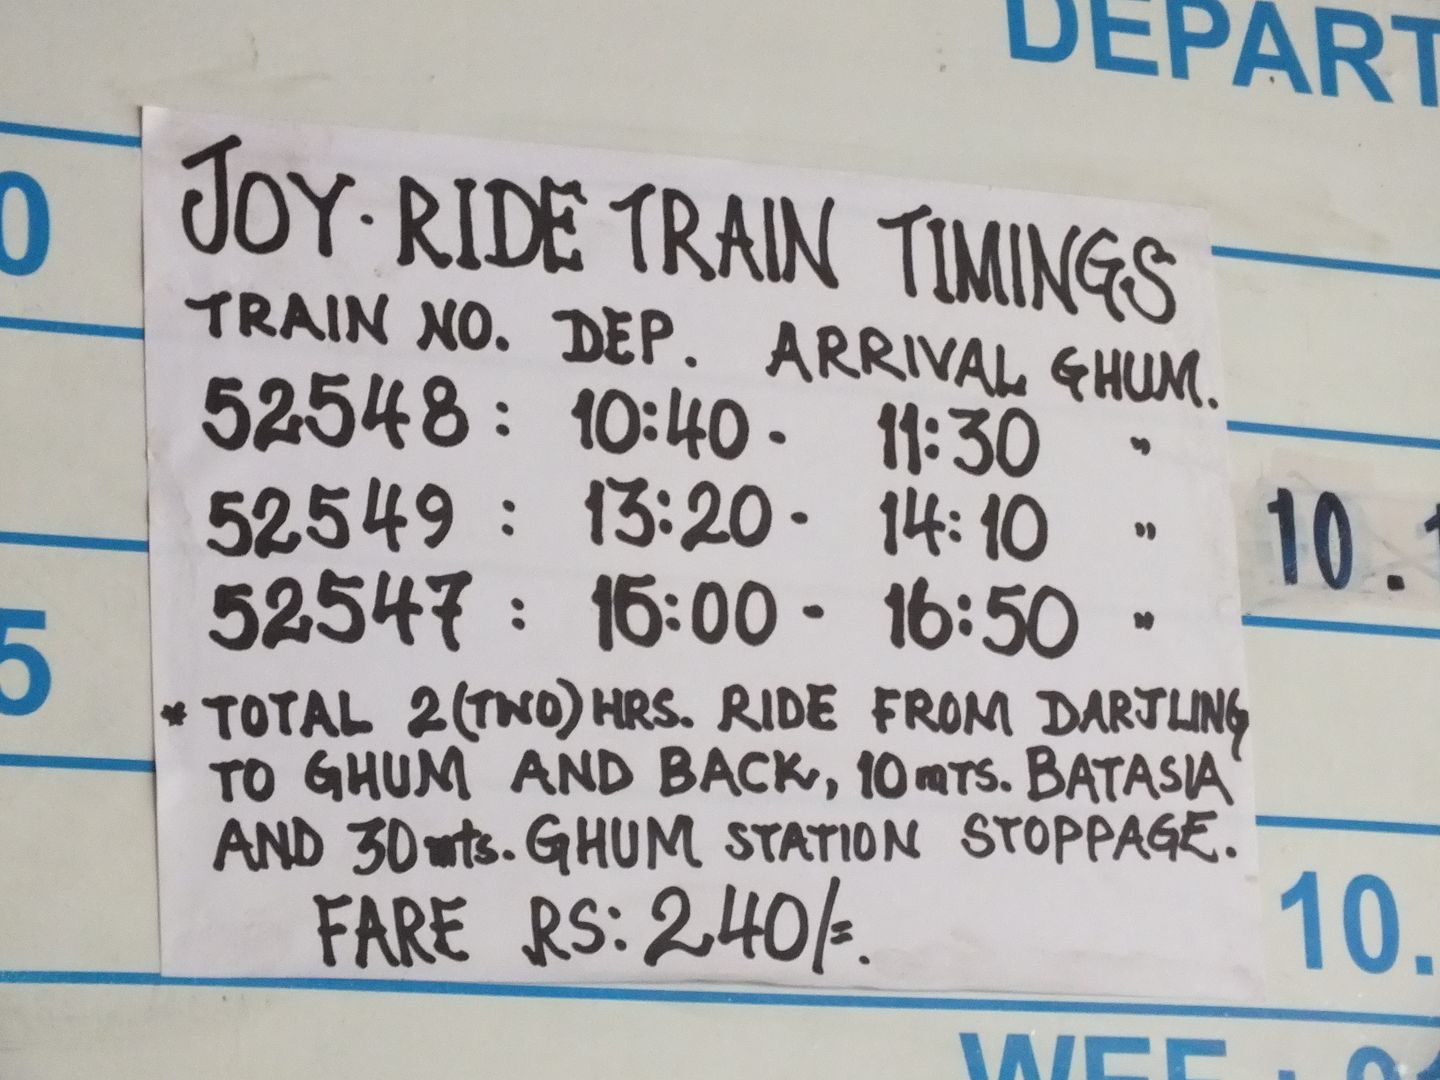 DEPART
JOY-RIDE TRAIN TIMINGS
TRAIN NO. DEP. ARRIVAL GHUM.
52548 : 10:40 - 11:30 "
52549 : 13:20 - 14:10 "
52547 : 16:00 - 16:50 "
* TOTAL 2(TWO)HRS. RIDE FROM DARJLING
TO GHUM AND BACK, 10mTS. BATASIA
AND 30mts. GHUM STATION STOPPAGE.
FARE RS: 240/=.
0
5
10.1
10.